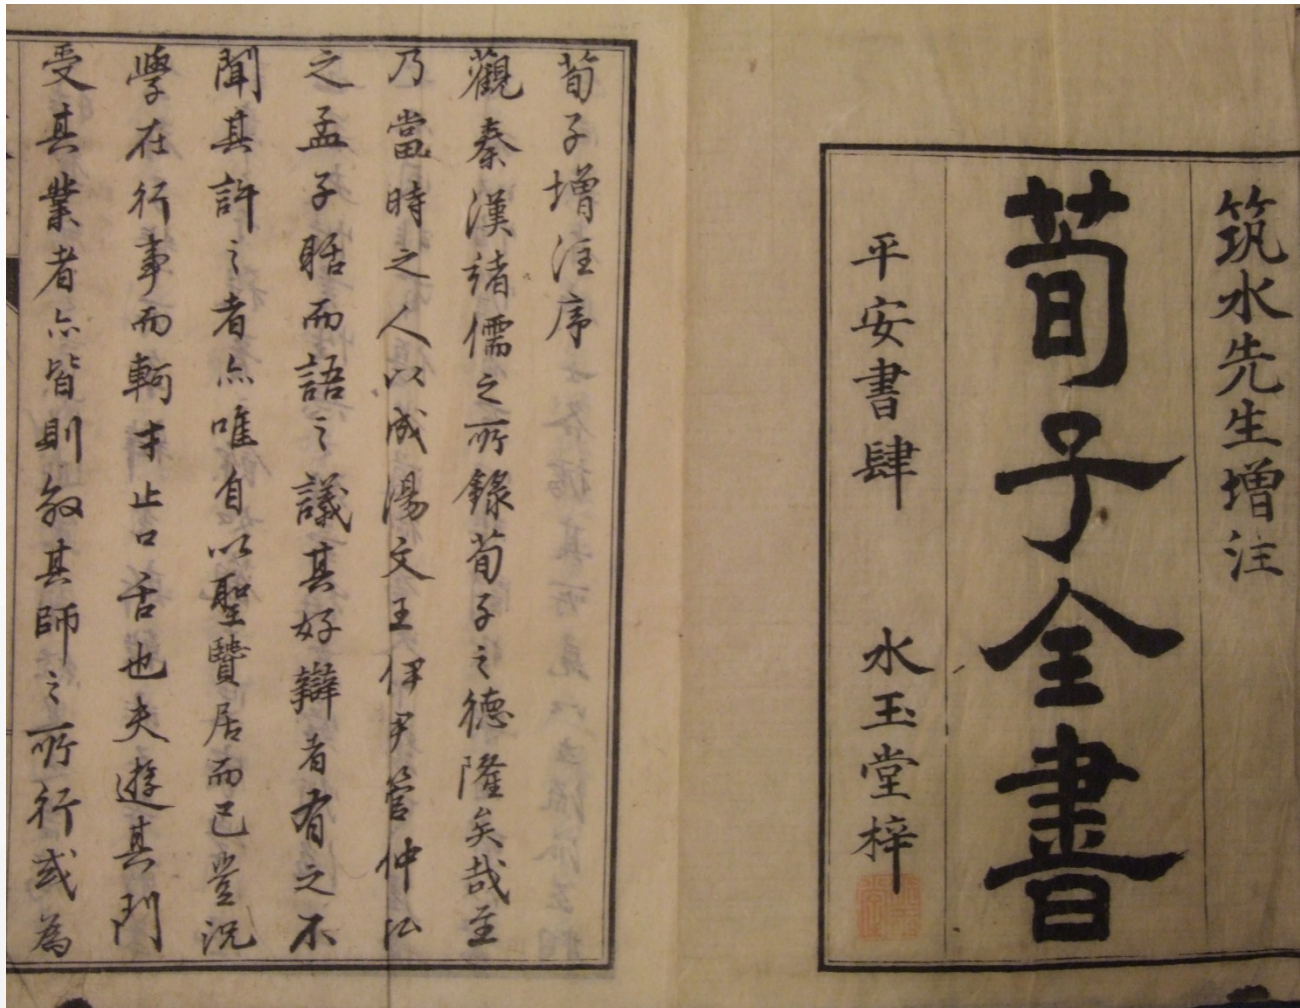 筑水先生增注
荀子全書
平安書肆 水玉堂梓
荀子增注序
觀秦漢諸儒之所錄荀子之德隆矣哉至
乃當時之人以成湯文王伊尹管仲仏
之孟子聒而語之議其好辯者有之不
聞其許之者亦唯自以聖贒居而已豈況
學在行事而軻才止口舌也夫遊其門
受其業者亦皆則效其師之所行或為